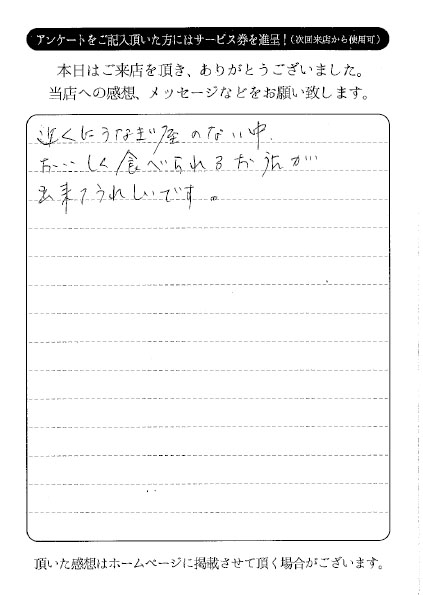 アンケートをご記入頂いた方にはサービス券を進呈!(次回来店から使用可)
本日はご来店を頂き、ありがとうございました。
当店への感想、メッセージなどをお願い致します。
近くにうなぎ屋のない中、
おいしく食べられるお店が
出来てうれしいです。
頂いた感想はホームページに掲載させて頂く場合がございます。